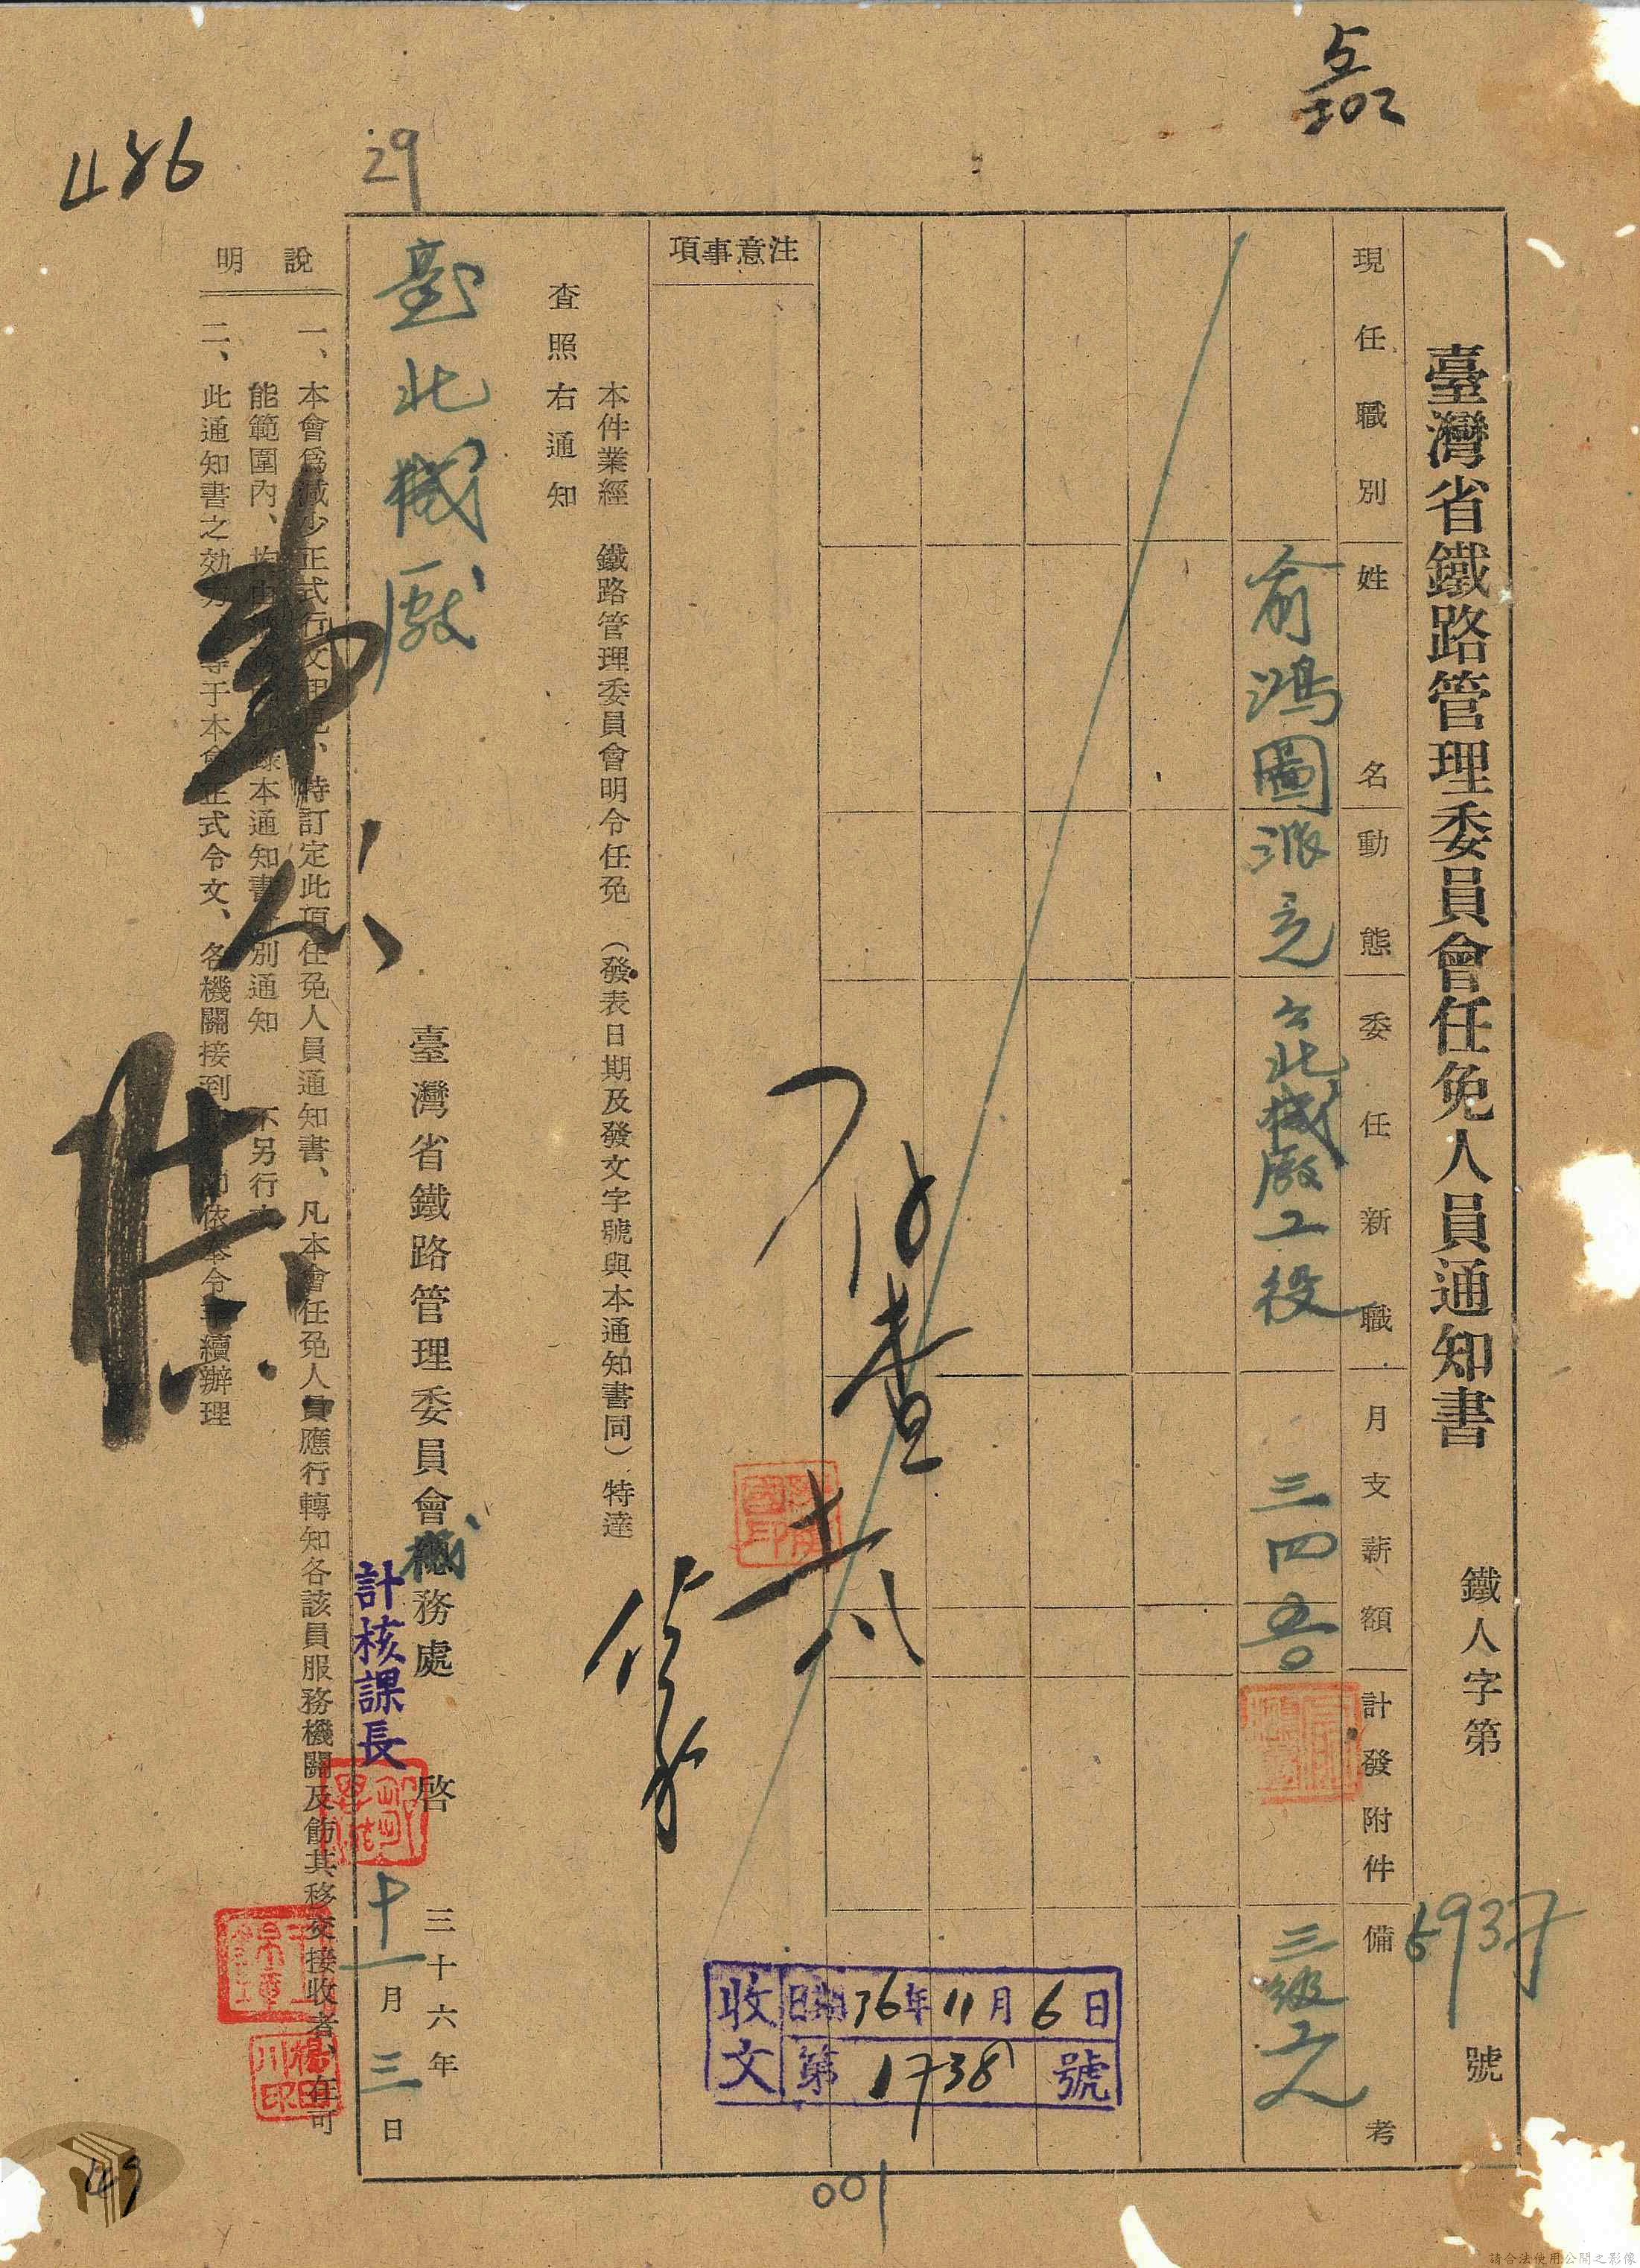 臺灣省鐵路管理委員會任免人員通知書
鐵人字第6937號
現任職別
姓名
動態
委任新職
月支薪額
計發附件
備考
俞鴻圖
派充
台北機廠工役
三四五〇
三級工人
注意事項
本件業經 鐵路管理委員會明令任免 (發表日期及發文字號與本通知書同) 特達
查照右通知
臺北機廠
臺灣省鐵路管理委員會機務處 啓
計核課長
三十六年
十一月三日
說明
一、本會爲減少正式行文起見、特訂定此項任免人員通知書、凡本會任免人員應行轉知各該員服務機關及飭其移交接收者、在可
能範圍內、均由 錄本通知書 別通知 不另行
二、此通知書之効力 等于本會正式令文、各機關接到 卽依奉令手續辦理
收文
日期36年11月6日
第1738號
存查
486
29
001
49
請合法使用公開之影像